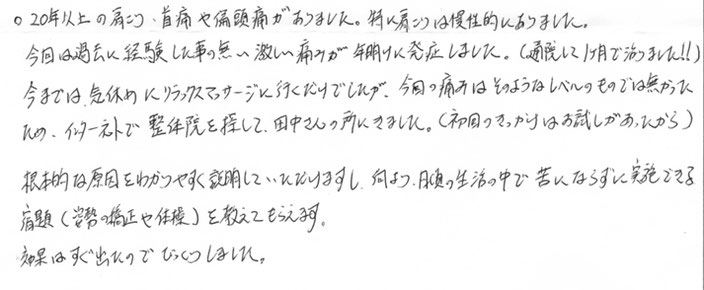 ○ 20年以上の肩こり、首痛や偏頭痛がありました。特に肩こりは慢性的にありました。
今回は過去に経験した事の無い激しい痛みが年明けに発症しました。(通院して1ヶ月で治りました!!)
今までは、気休めにリラックスマッサージに行くだけでしたが、今回の痛みはそのようなレベルのものでは無かった
ため、インターネットで整体院を探して、田中さんの所にきました。(初回のきっかけはお試しがあったから)
根本的な原因をわかりやすく説明していただけますし、何より、日頃の生活の中で苦にならずに実施できる
宿題(姿勢の矯正や体操)を教えてもらえます。
効果はすぐ出たのでびっくりしました。